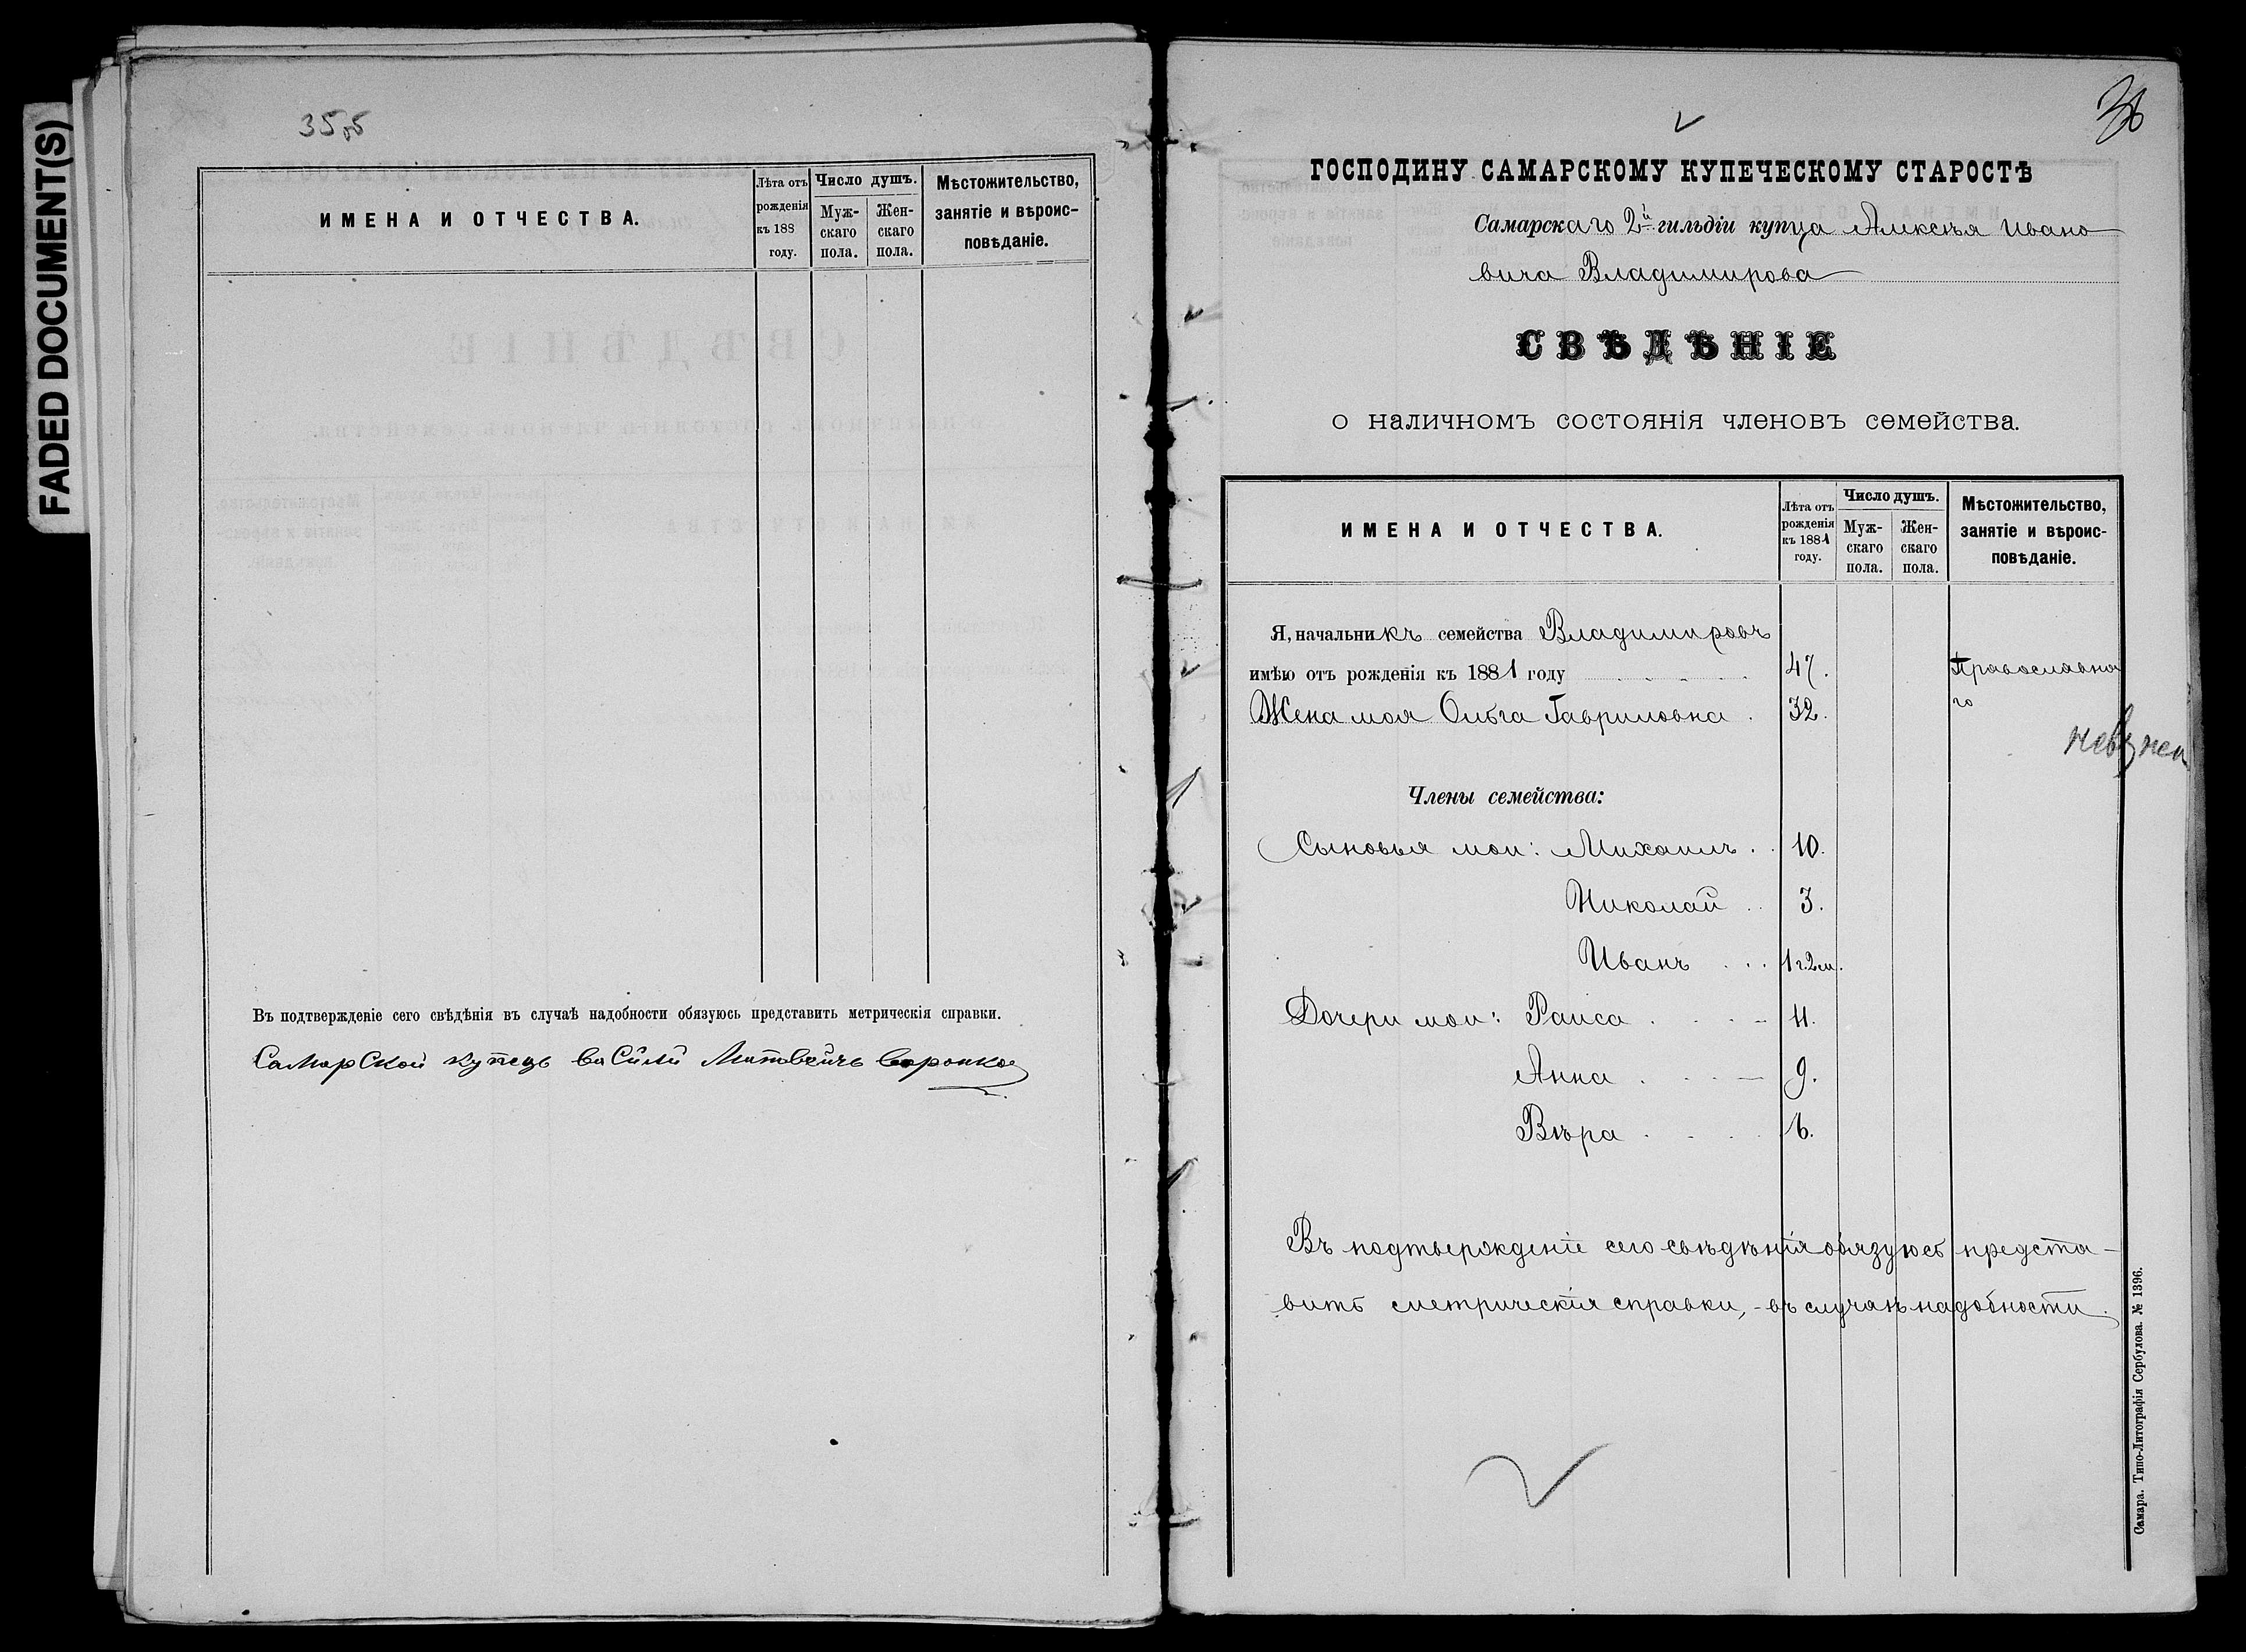 FADED DOCUMENT(S)
35об
ИМЕНА И ОТЧЕСТВА.
Лѣта отъ рожденія къ 188 году.
Число душъ.
Мужскаго пола.
Женскаго пола.
Мѣстожительство, занятіе и вѣроисповѣданіе.
Въ подтвержденіе сего свѣдѣнія въ случаѣ надобности обязуюсь представить метрическія справки.
Самарской купецъ василй Матвеичь
36
ГОСПОДИНУ САМАРСКОМУ КУПЕЧЕСКОМУ СТАРОСТѢ
Самарскаго 2й гильдіи купца Алексѣя Ивано
вича Владимирова
СВѢДѢНІЕ
о наличномъ состоянія членовъ семейства.
ИМЕНА И ОТЧЕСТВА.
Лѣта отъ рожденія къ 1881 году.
Число душъ.
Мужскаго пола.
Женскаго пола.
Мѣстожительство, занятіе и вѣроисповѣданіе.
Я, начальникъ семейства Владимировъ
имѣю отъ рожденія къ 1881 году 47. Православна
Жена моя Ольга Гавриловна . 32. го
Члены семейства:
Сыновья мои: Михаилъ . . 10.
Николай . . 3.
Иванъ . . . 1 г. 2 м.
Дочери мои: Раиса . . . - 11.
Анна . . . - 9.
Вѣра . . . . 6.
Въ подтвержденіе сего свѣдѣнія обязуюсь предста-
вить метрическія справки, - въ случаѣ надобности.
Самара. Типо-Литографія Сербулова. № 1396.